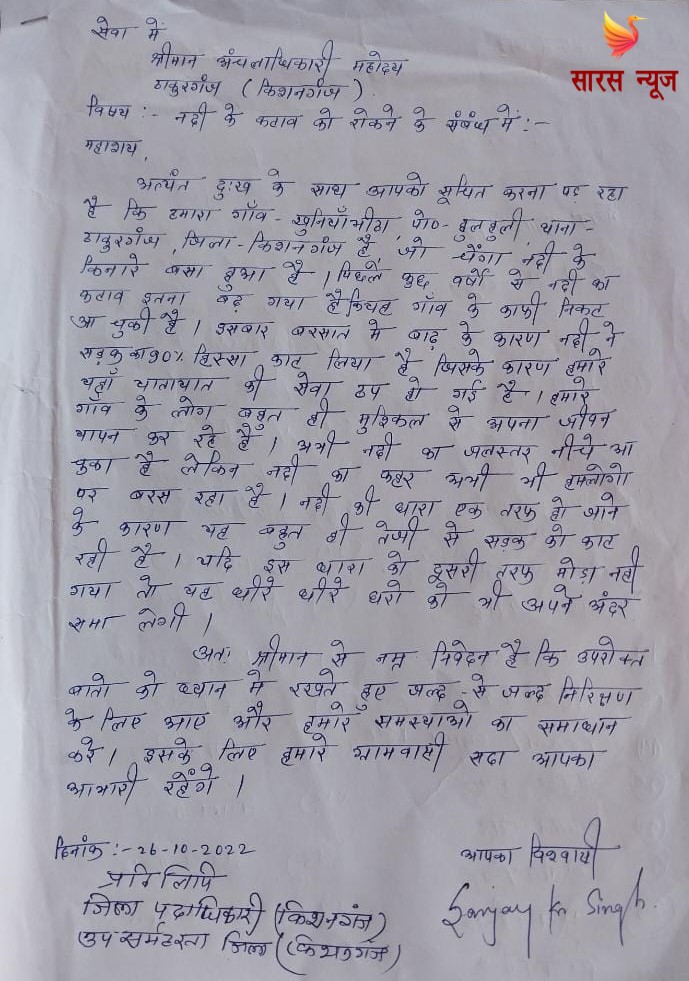 सेवा में
श्रीमान अंचलाधिकारी महोदय
ठाकुरगंज (किशनगंज)
सारस न्यूज
विषय :- नदी के कटाव को रोकने के संबंध में :-
महाशय,
अत्यंत दुःख के साथ आपको सूचित करना पड़ रहा
है कि हमारा गाँव - खुनियाँभीठा, पो०- बुलबुली, थाना-
ठाकुरगंज, जिला - किशनगंज है, जो चेंगा नदी के
किनारे बसा हुआ है। पिछले कुछ वर्षों से नदी का
कटाव इतना बढ़ गया है कि यह गाँव के काफी निकट
आ चुकी है। इसबार बरसात में बाढ़ के कारण नदी ने
सड़क का 90% हिस्सा काट लिया है जिसके कारण हमारे
यहाँ यातायात की सेवा ठप हो गई है। हमारे
गाँव के लोग बहुत ही मुश्किल से अपना जीवन
यापन कर रहे है। अभी नदी का जलस्तर नीचे आ
चुका है लेकिन नदी का कहर अभी भी हमलोगो
पर बरस रहा है। नदी की धारा एक तरफ हो जाने
के कारण यह बहुत ही तेजी से सड़क को काट
रही है। यदि इस धारा को दूसरी तरफ मोड़ा नही
गया तो यह धीरे धीरे घरो को भी अपने अंदर
समा लेगी।
अतः श्रीमान से नम्र निवेदन है कि उपरोक्त
बातो को ध्यान मे रखते हुए जल्द - से जल्द निरिक्षण
के लिए आए और हमारे समस्याओ का समाधान
करे। इसके लिए हमारे ग्रामवासी सदा आपका
आभारी रहेंगे।
दिनांक :- 26-10-2022
आपका विश्वासी
प्रतिलिपि
Sanjay Kr. Singh.
जिला पदाधिकारी (किशनगंज)
उप समाहर्ता जिला (किशनगंज)